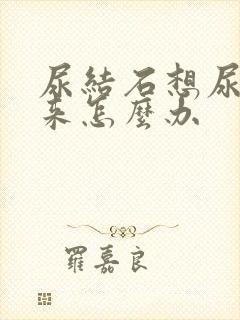 尿結石想尿
來怎麼办
羅嘉良